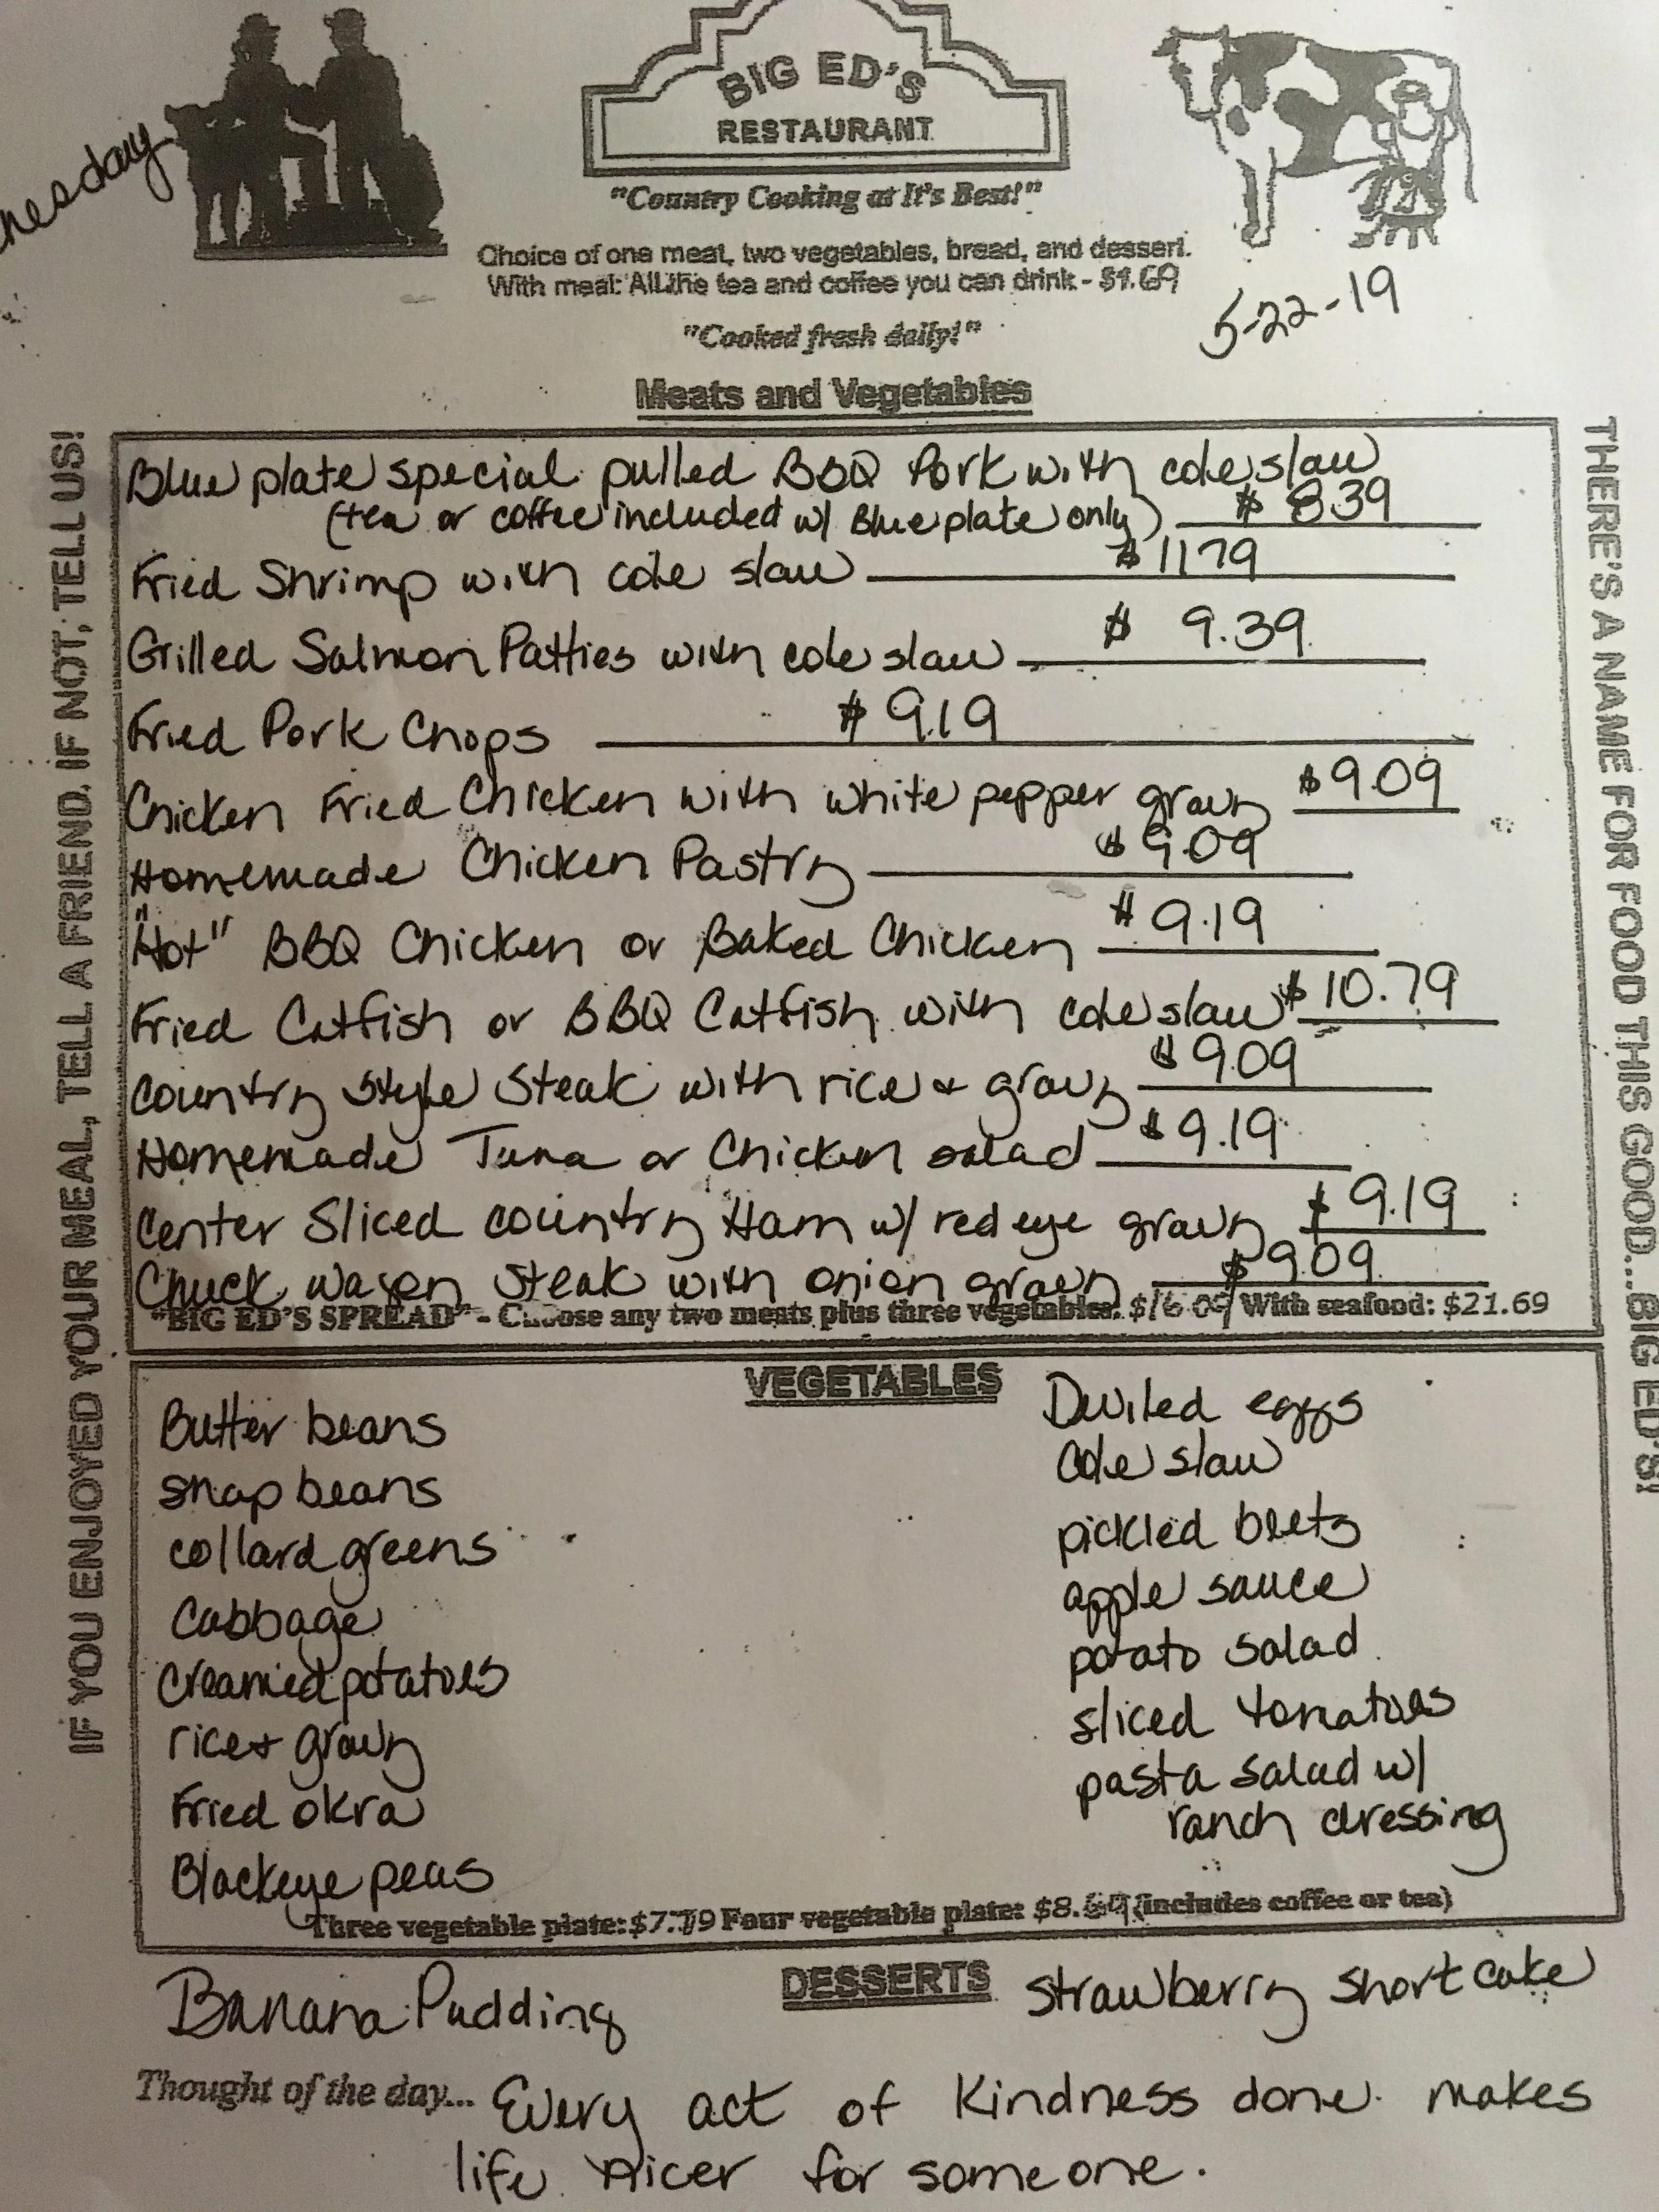 BIG ED'S
RESTAURANT
nesday
"Country Cooking at It's Best!"
Choice of one meat, two vegetables, bread, and dessert.
With meal: All the tea and coffee you can drink - $1.69
5-22-19
"Cooked fresh daily!"
Meats and Vegetables
IF YOU ENJOYED YOUR MEAL, TELL A FRIEND. IF NOT, TELL US!
THERE'S A NAME FOR FOOD THIS GOOD...BIG ED'S!
Blue plate special pulled BBQ Pork with cole slaw
(tea or coffee included w/ Blue plate only) $ 8.39
Fried Shrimp with cole slaw $ 11.79
Grilled Salmon Patties with cole slaw $ 9.39
Fried Pork Chops $ 9.19
Chicken Fried Chicken with white pepper gravy $9.09
Homemade Chicken Pastry $9.09
"Hot" BBQ Chicken or Baked Chicken $9.19
Fried Catfish or BBQ Catfish with cole slaw $10.79
Country Style Steak with rice & gravy $9.09
Homemade Tuna or Chicken salad $9.19
Center Sliced country Ham w/ red eye gravy $9.19
Chuck wagon Steak with onion gravy $9.09
"BIG ED'S SPREAD" - Choose any two meats plus three vegetables: $16.09 With seafood: $21.69
VEGETABLES
Butter beans
snap beans
collard greens
Cabbage
Creamed potatoes
rice & gravy
Fried okra
Blackeye peas
Deviled eggs
Cole slaw
pickled beets
apple sauce
potato salad
sliced tomatoes
pasta salad w/
ranch dressing
Three vegetable plate: $7.79 Four vegetable plate: $8.69 (includes coffee or tea)
DESSERTS
Banana Pudding
Strawberry Shortcake
Thought of the day... Every act of Kindness done makes
life nicer for someone.